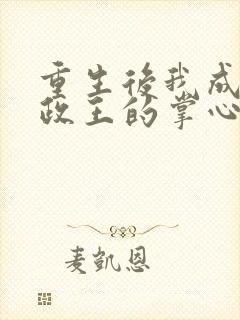 重生後我成
政王的掌心
麦凱恩